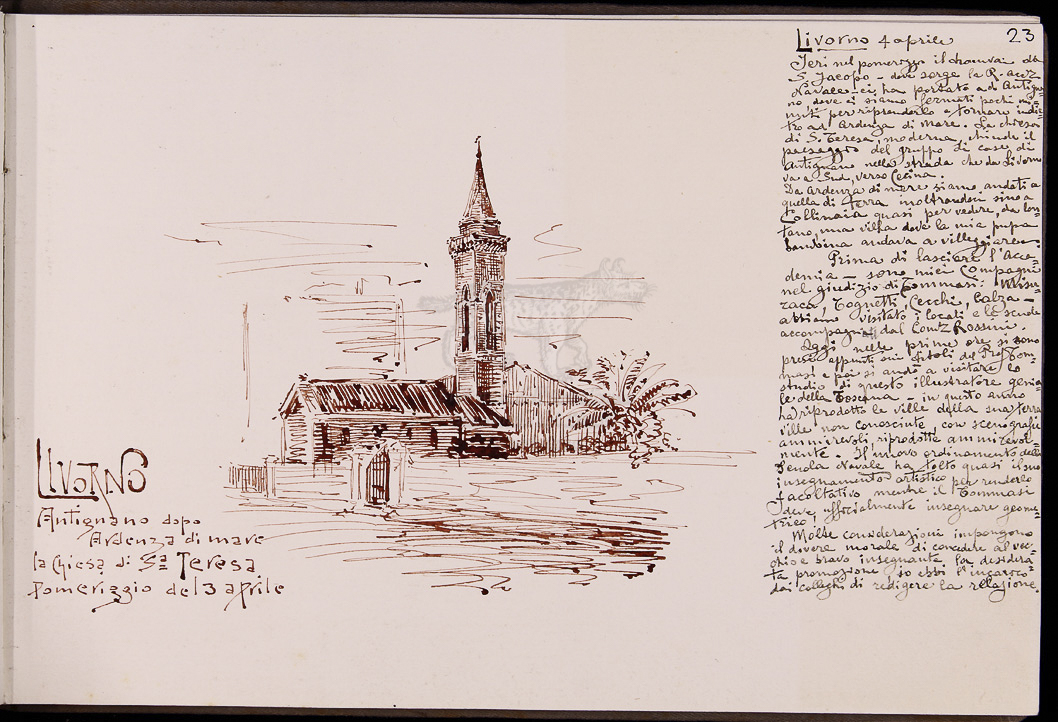 23
Livorno 4 aprile
Ieri nel pomeriggio il tramvai da
S. Jacopo – dove sorge la R. acc.
Navale – ci ha portato ad Antigna=
no, dove ci siamo fermati pochi mi=
nuti per riprenderlo e tornare indie=
tro ad Ardenza di mare. La chiesa
di S. Teresa, moderna, chiude il
paesaggio del gruppo di case di
Antignano nella strada che da Livorno
va a Sud, verso Cecina.
Da Ardenza di mare siamo andati a
quella di terra inoltrandoci sino a
Collinaia quasi per vedere, da lon=
tano, una villa dove la mia pupa
bambina andava a villeggiare.
Prima di lasciare l'Acca=
demia – sono miei compagni
nel giudizio di Tommasi:
Tognetti, Cecchi, Calza –
abbiamo visitato i locali e le scuole
accompagnati dal Rossini.
Oggi nelle prime ore si sono
presi appunti sui titoli del Prof. Tom=
masi e poi si andò a visitare lo
studio di questo illustratore genia=
le della Toscana – in questo anno
ha riprodotto le ville della sua terra
ville non conosciute, con scenografie
ammirevoli, riprodotte ammirevol=
mente. Il nuovo ordinamento della
Scuola Navale ha tolto quasi il suo
insegnamento artistico per renderlo
facoltativo mentre il Tommasi
deve, ufficialmente insegnare geome=
trico,
Molte considerazioni impongono
il dovere morale di concedere al vec=
chio e bravo insegnante la desidera=
ta promozione, io ebbi l'incarico
dai colleghi di redigere la relazione.
LIVORNO
Antignano dopo
Ardenza di mare
la Chiesa di Sa Teresa
pomeriggio del 3 aprile